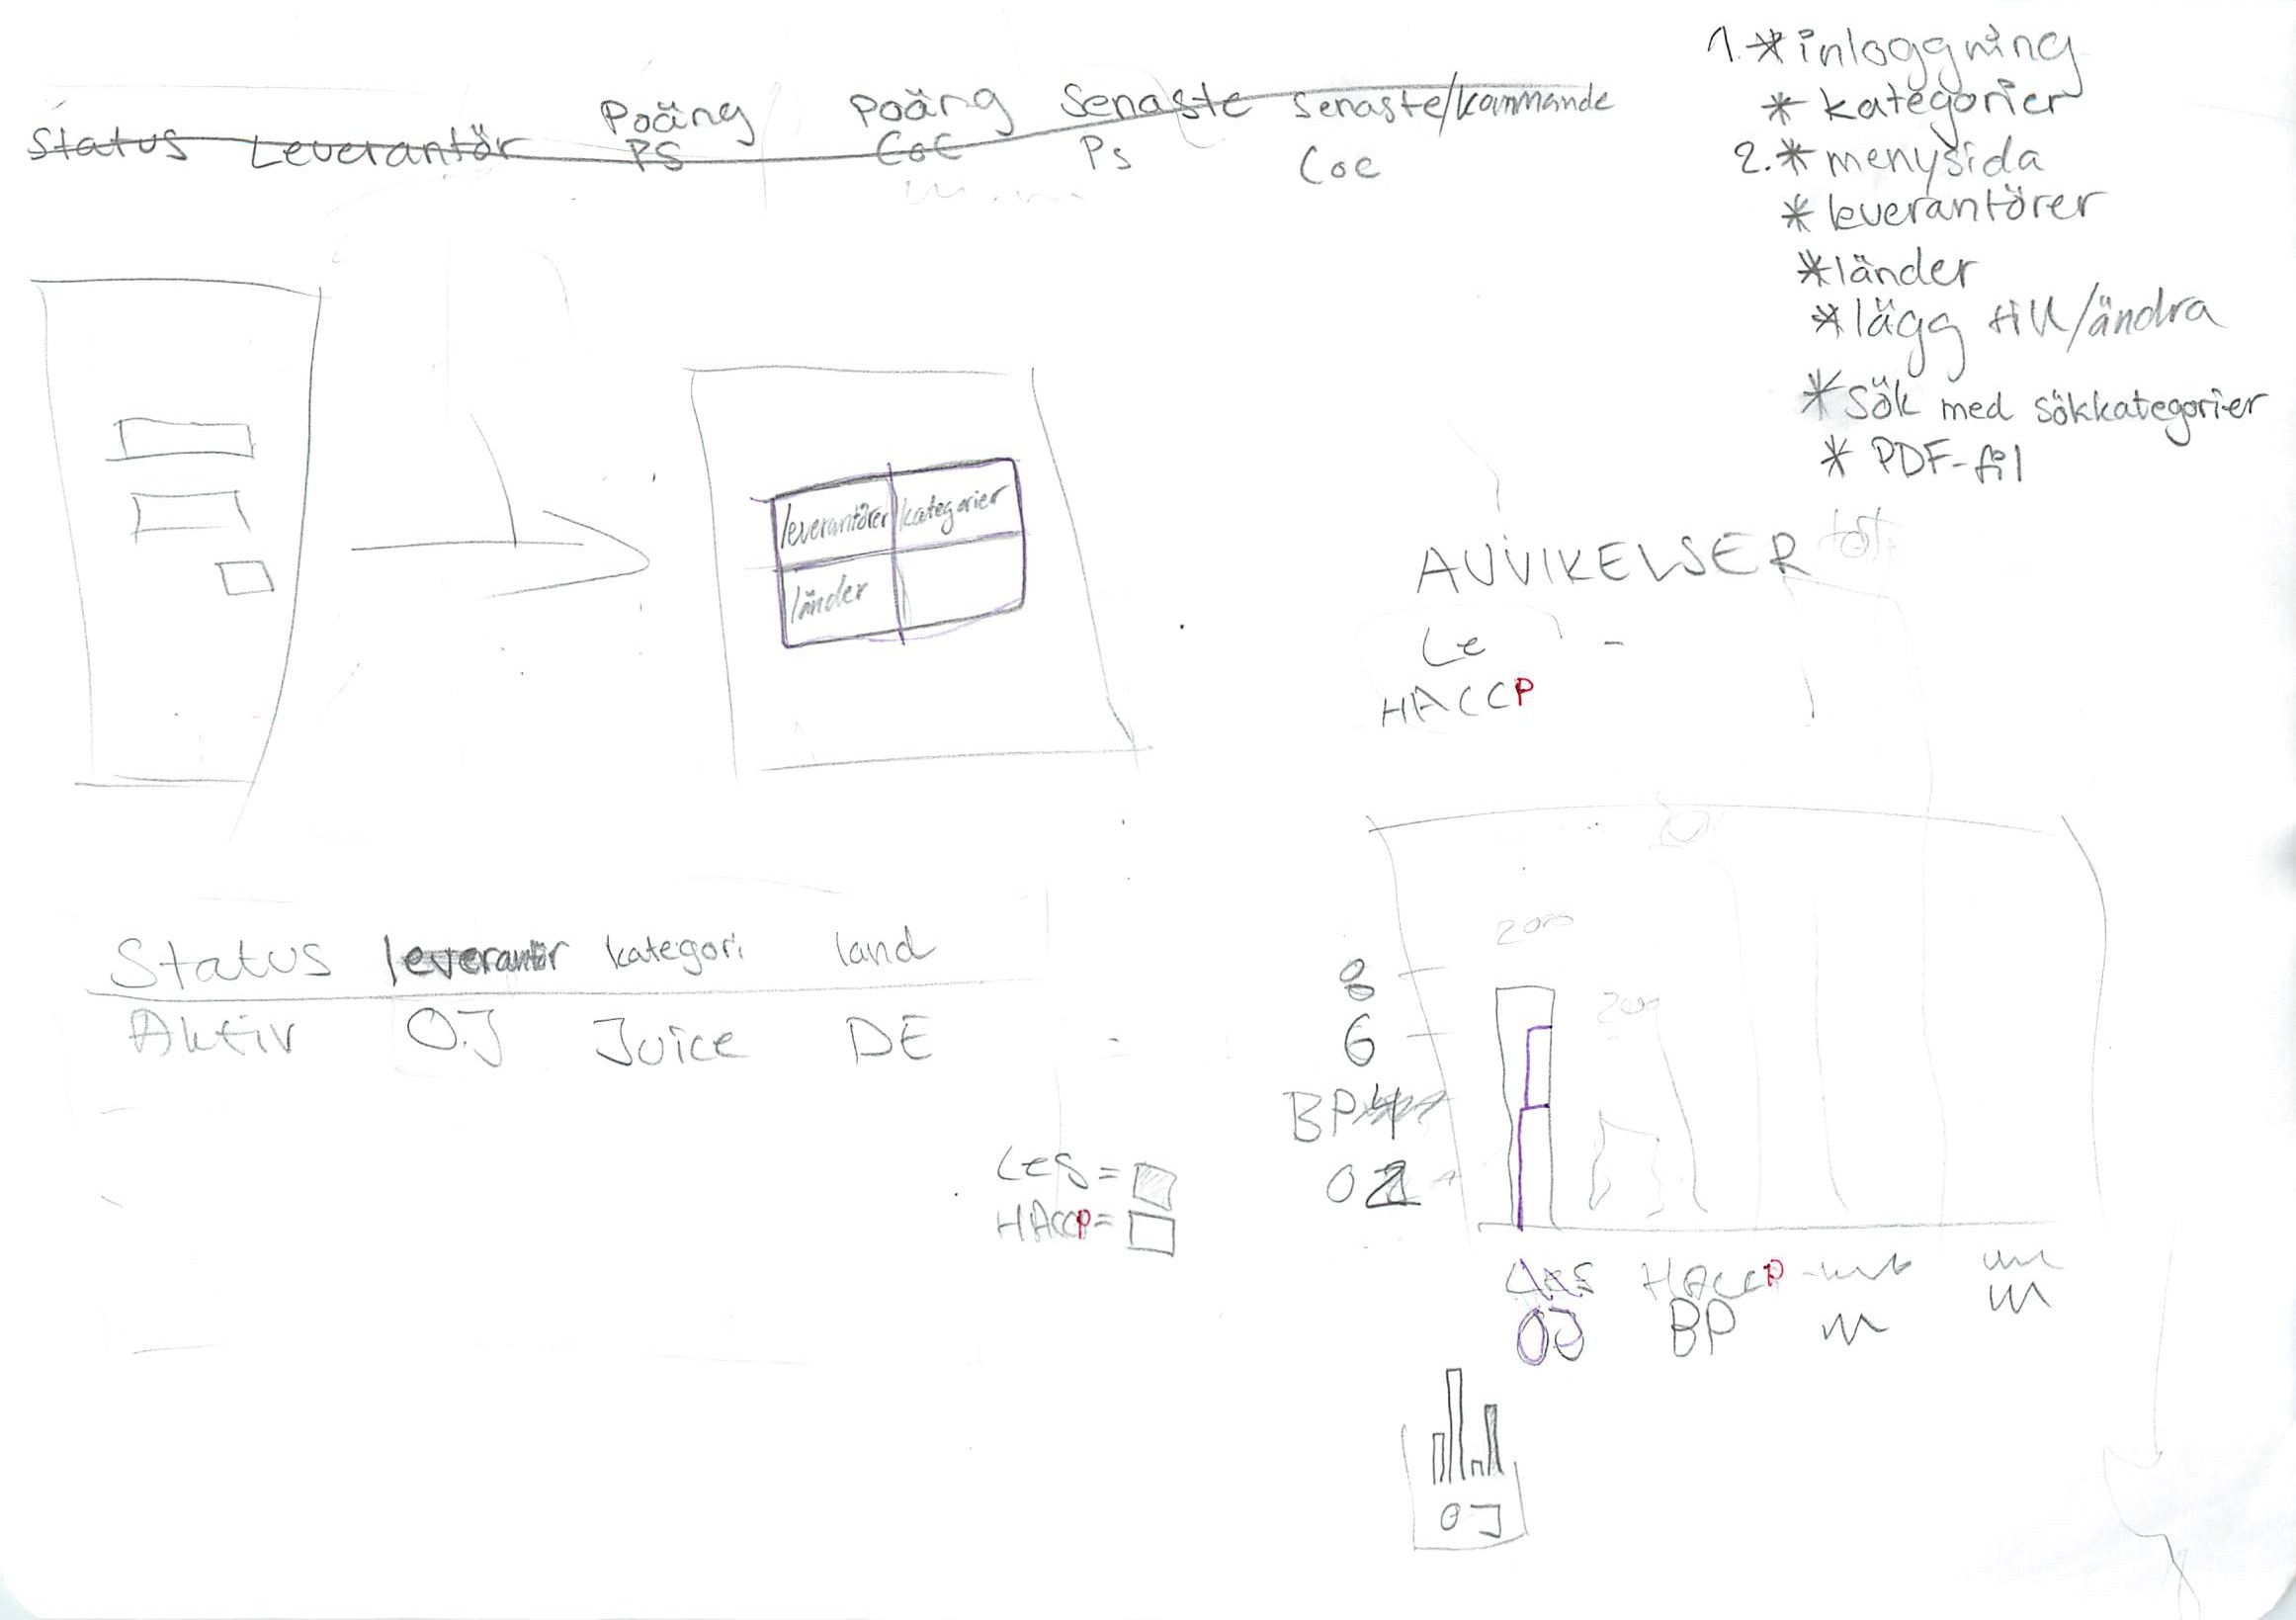 Status Leverantör Poäng PS Poäng CoC Senaste Ps Senaste/kommande Coc
1. * inloggning
* kategorier
2. * menysida
* leverantörer
* länder
* lägg till/ändra
* Sök med sökkategorier
* PDF-fil
leverantörer kategorier
länder
AVVIKELSER
Le -
HACCP
Status leverantör kategori land
Aktiv OJ Juice DE
LeS =
HACCP =
8
6
BP
0 2
HACCP
OJ BP
OJ